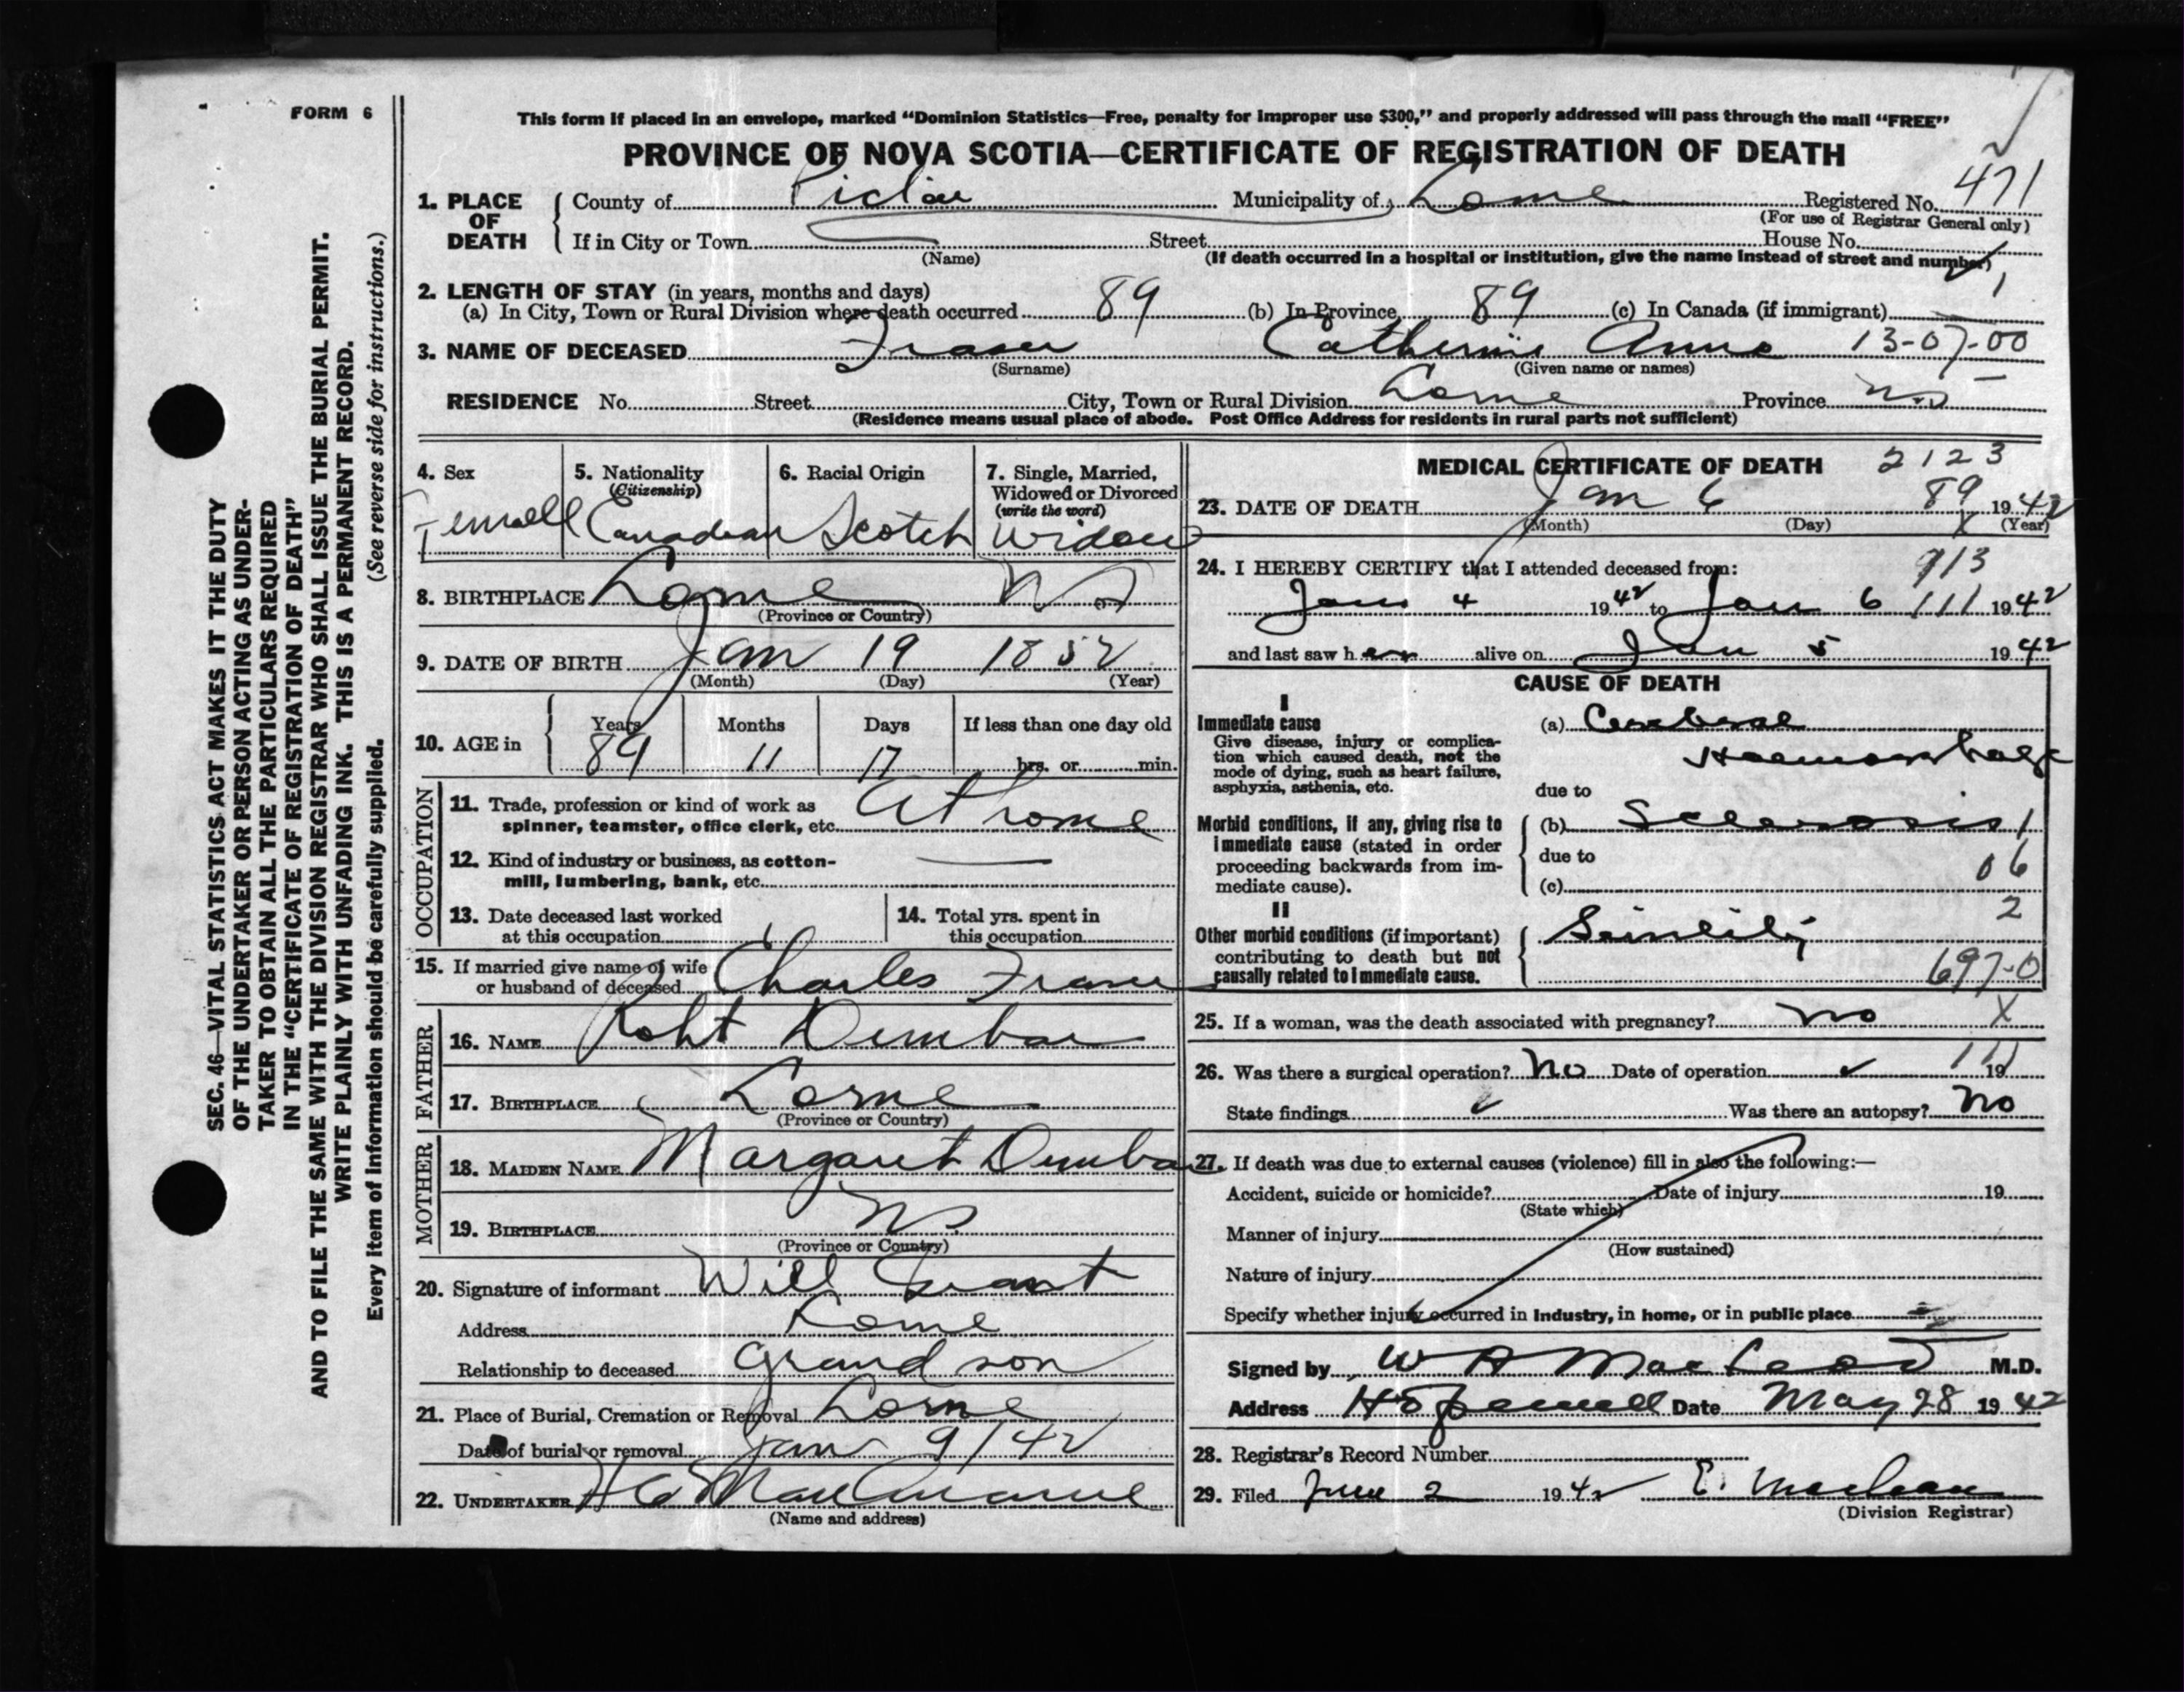 FORM 6
This form if placed in an envelope, marked “Dominion Statistics—Free, penalty for improper use $300,” and properly addressed will pass through the mail “FREE”
PROVINCE OF NOVA SCOTIA—CERTIFICATE OF REGISTRATION OF DEATH
SEC. 46—VITAL STATISTICS ACT MAKES IT THE DUTY
OF THE UNDERTAKER OR PERSON ACTING AS UNDER-
TAKER TO OBTAIN ALL THE PARTICULARS REQUIRED
IN THE “CERTIFICATE OF REGISTRATION OF DEATH”
AND TO FILE THE SAME WITH THE DIVISION REGISTRAR WHO SHALL ISSUE THE BURIAL PERMIT.
WRITE PLAINLY WITH UNFADING INK. THIS IS A PERMANENT RECORD.
Every item of information should be carefully supplied. (See reverse side for instructions.)
1. PLACE OF DEATH
County of Pictou Municipality of Lorne Registered No. 471
(For use of Registrar General only)
If in City or Town Street House No.
(Name) (If death occurred in a hospital or institution, give the name instead of street and number)
2. LENGTH OF STAY (in years, months and days)
(a) In City, Town or Rural Division where death occurred 89 (b) In Province 89 (c) In Canada (if immigrant)
3. NAME OF DECEASED Fraser Catherine Anne 13-07-00
(Surname) (Given name or names)
RESIDENCE No. Street City, Town or Rural Division Lorne Province N.S.
(Residence means usual place of abode. Post Office Address for residents in rural parts not sufficient)
4. Sex
Femall
5. Nationality
(Citizenship)
Canadean
6. Racial Origin
Scotch
7. Single, Married,
Widowed or Divorced
(write the word)
Widow
8. BIRTHPLACE Lorne NS
(Province or Country)
9. DATE OF BIRTH Jan 19 1852
(Month) (Day) (Year)
10. AGE in
Years Months Days If less than one day old
89 11 17 hrs. or min.
OCCUPATION
11. Trade, profession or kind of work as
spinner, teamster, office clerk, etc. At home
12. Kind of industry or business, as cotton-
mill, lumbering, bank, etc.
13. Date deceased last worked
at this occupation
14. Total yrs. spent in
this occupation
15. If married give name of wife
or husband of deceased Charles Fraser
FATHER
16. NAME Robt Dunbar
17. BIRTHPLACE Lorne
(Province or Country)
MOTHER
18. MAIDEN NAME Margaret Dunbar
19. BIRTHPLACE NS
(Province or Country)
20. Signature of informant Will Grant
Address Lorne
Relationship to deceased Grand son
21. Place of Burial, Cremation or Removal Lorne
Date of burial or removal Jan 9/42
22. UNDERTAKER
(Name and address)
MEDICAL CERTIFICATE OF DEATH 2123
23. DATE OF DEATH Jan 6 89 1942
(Month) (Day) X (Year)
24. I HEREBY CERTIFY that I attended deceased from: 913
Jan 4 1942 to Jan 6 111 1942
and last saw her alive on Jan 5 1942
CAUSE OF DEATH
I
Immediate cause
Give disease, injury or complica-
tion which caused death, not the
mode of dying, such as heart failure,
asphyxia, asthenia, etc.
(a) Cerebral
Haemorrhage
due to
Morbid conditions, if any, giving rise to
immediate cause (stated in order
proceeding backwards from im-
mediate cause).
(b) Sclerosis 1
due to 06
(c)
2
II
Other morbid conditions (if important)
contributing to death but not
causally related to immediate cause.
Seinility
697-0
25. If a woman, was the death associated with pregnancy? no X
26. Was there a surgical operation? No Date of operation 19
State findings Was there an autopsy? No
27. If death was due to external causes (violence) fill in also the following:—
Accident, suicide or homicide? Date of injury 19
(State which)
Manner of injury
(How sustained)
Nature of injury
Specify whether injury occurred in Industry, in home, or in public place
Signed by W A MacLeod M.D.
Address Hopewell Date May 28 1942
28. Registrar’s Record Number
29. Filed June 2 1942 E. Maclean
(Division Registrar)